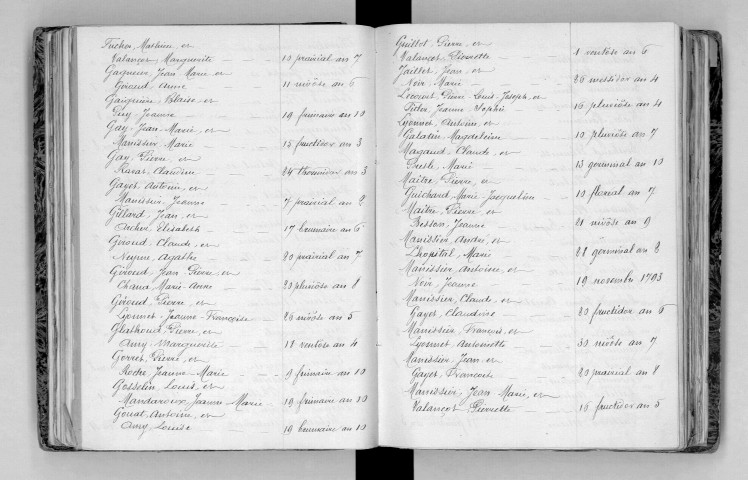 Fucher, Mathieu, et
Valançot, Marguerite — — 10 prairial an 7
Gagneur, Jean Marie et
Giroud, Anne — — 11 nivôse an 6
Gaignaire, Blaise, et
Guy, Jeanne — — 19 frimaire an 10
Gay, Jean-Marie, et
Manissier, Marie — — 15 fructidor an 3
Gay, Pierre, et
Ravat, Claudine — — 24 thermidor an 3
Gayet, Antoine, et
Manissier, Jeanne — — 7 prairial an 2
Gillard, Jean, et
Elisabeth — — 17 brumaire an 6
Giroud, Claude, et
Neyme, Agathe — — 20 prairial an 7
Giroud, Jean Pierre, et
Marie-Anne — — 20 pluviôse an 8
Giroud, Pierre, et
Lyonnet, Jeanne-Françoise — — 26 nivôse an 5
Pierre, et
Amy, Marguerite — — 18 ventôse an 4
Gorret, Pierre, et
Roche, Jeanne-Marie — — 9 frimaire an 10
Gosselin, Louis, et
Mandaroux, Jeanne Marie — 19 frimaire an 10
Goud, Antoine, et
Amy, Louise — — 19 brumaire an 10
Guillot, Pierre, et
Valançot, Pierrette — — 1 ventôse an 6
Jaillet, Jean, et
Noir, Marie — — 26 messidor an 4
Lecourt, Pierre, Louis, Joseph, et
Jeanne Sophie — — 16 pluviôse an 4
Lyonnet, Antoine, et
Galatin, Magdeleine — — 10 pluviôse an 7
Magaud, Claude, et
Marie — — 13 germinal an 10
Maître, Pierre, et
Guichard, Marie-Jacqueline — 10 floréal an 7
Maître, Pierre, et
Besson, Jeanne — — 21 nivôse an 9
Manissier, André, et
Lhopital, Marie — — 28 germinal an 2
Manissier, Antoine, et
Noir, Jeanne — — 19 novembre 1793
Manissier, Claude, et
Gayet, Claudine — — 30 fructidor an 6
Manissier, François, et
Lyonnet, Antoinette — — 30 nivôse an 7
Manissier, Jean, et
Gayet, Françoise — — 20 prairial an 8
Manissier, Jean Marie, et
Valançot Pierrette — — 16 fructidor an 5